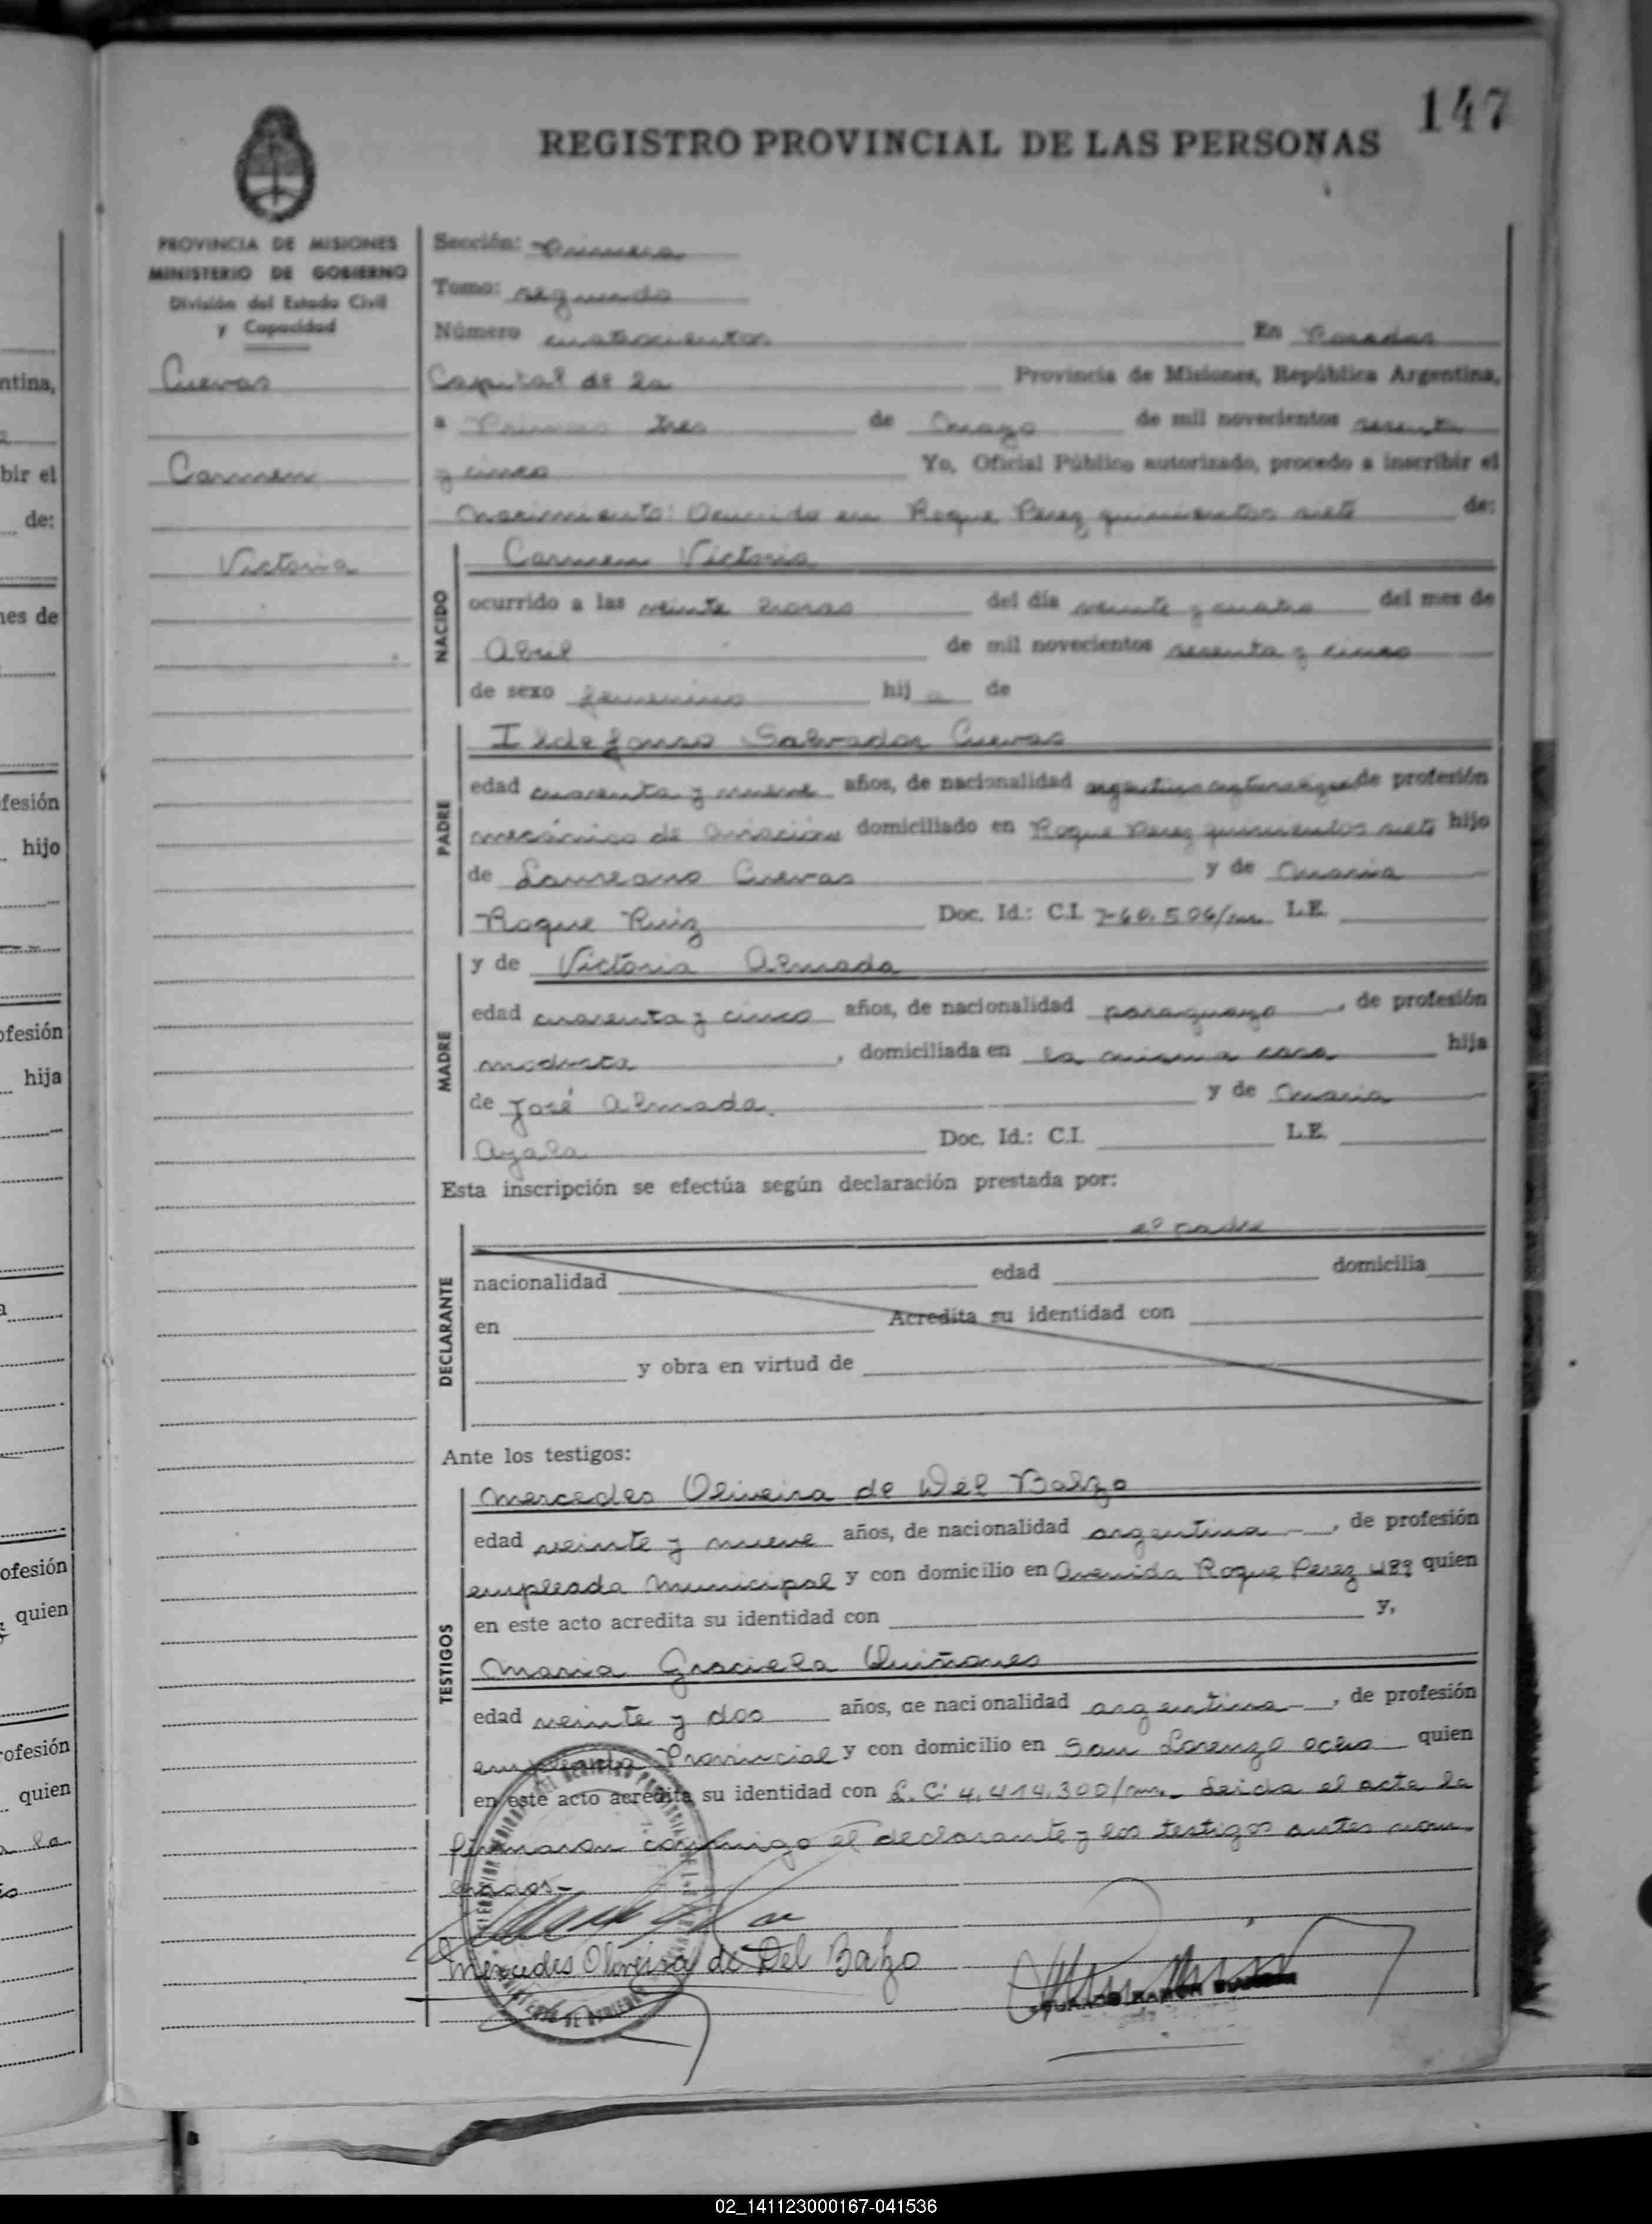 147
REGISTRO PROVINCIAL DE LAS PERSONAS
PROVINCIA DE MISIONES
MINISTERIO DE GOBIERNO
División del Estado Civil
y Capacidad
Cuevas
Carmen
Victoria
Sección: Primera
Tomo: segundo
Número cuatrocientos En Posadas
Capital de la Provincia de Misiones, República Argentina,
a tres de Mayo de mil novecientos sesenta
y cinco Yo, Oficial Público autorizado, procedo a inscribir el
Nacimiento: Ocurrido en Roque Perez quinientos siete de:
NACIDO
Carmen Victoria
ocurrido a las veinte horas del día veinte y cuatro del mes de
Abril de mil novecientos sesenta y cinco
de sexo femenino hij a de
PADRE
Ildefonso Salvador Cuevas
edad cuarenta y nueve años, de nacionalidad de profesión
mecánico de aviación domiciliado en Roque Perez quinientos siete hijo
de Laureano Cuevas y de Maria
Roque Ruiz Doc. Id.: C.I. L.E.
MADRE
y de Victoria Almada
edad cuarenta y cinco años, de nacionalidad paraguaya, de profesión
modista, domiciliada en la misma casa hija
de José Almada. y de Maria
Ayala Doc. Id.: C.I. L.E.
Esta inscripción se efectúa según declaración prestada por:
DECLARANTE
el padre
nacionalidad edad domicilia
en Acredita su identidad con
y obra en virtud de
Ante los testigos:
TESTIGOS
Mercedes Oliveira de Del Balzo
edad veinte y nueve años, de nacionalidad argentina, de profesión
empleada Municipal y con domicilio en Avenida Roque Perez 489 quien
en este acto acredita su identidad con y,
Maria Graciela Quiñones
edad veinte y dos años, de nacionalidad argentina, de profesión
empleada Provincial y con domicilio en San Lorenzo ocho quien
en este acto acredita su identidad con L.C. 4.414.300/m. Leida el acta la
firmaron conmigo el declarante y los testigos antes nom-
brados.-
Mercedes Oliveira de Del Balzo
02_141123000167-041536